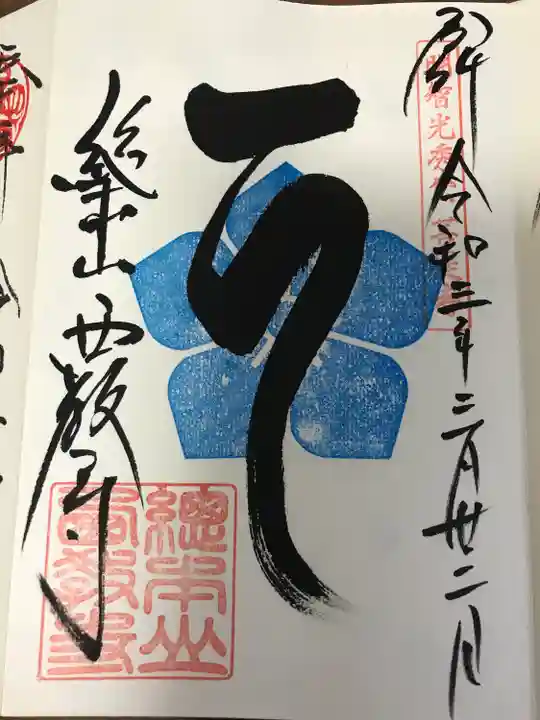 令和三年三月廿二日
明智光秀
総本山 西教寺
總本山
西教寺